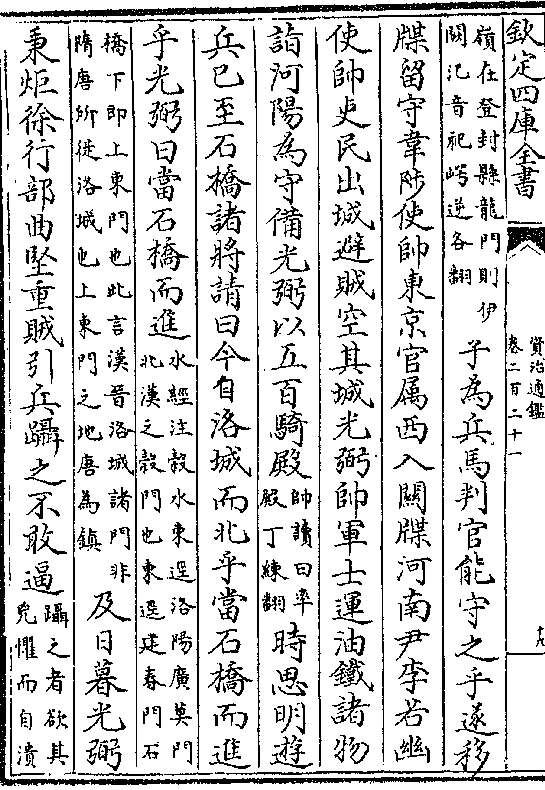 欽定四庫全書
資治通鑑
卷二百二十一
十九
嶺在登封縣龍門則伊
闕汜音祀崿逆各翻
子為兵馬判官能守之乎遂移
牒留守韋陟使帥東京官属西入關牒河南尹李若幽
使帥吏民出城避賊空其城光弼帥軍士運油鐵諸物
詣河陽為守備光弼以五百騎殿
帥讀曰率
殿丁練翻
時思明遊
兵已至石橋諸將請曰今自洛城而北乎當石橋而進
乎光弼曰當石橋而進
水經注榖水東逕洛陽廣莫門
北漢之榖門也東逕建春門石
橋下即上東門也此言漢晉洛城諸門非
隋唐所徙洛城也上東門之地唐為鎮
及日暮光弼
秉炬徐行部曲堅重賊引兵躡之不敢逼
躡之者欲其
兇懼而自潰